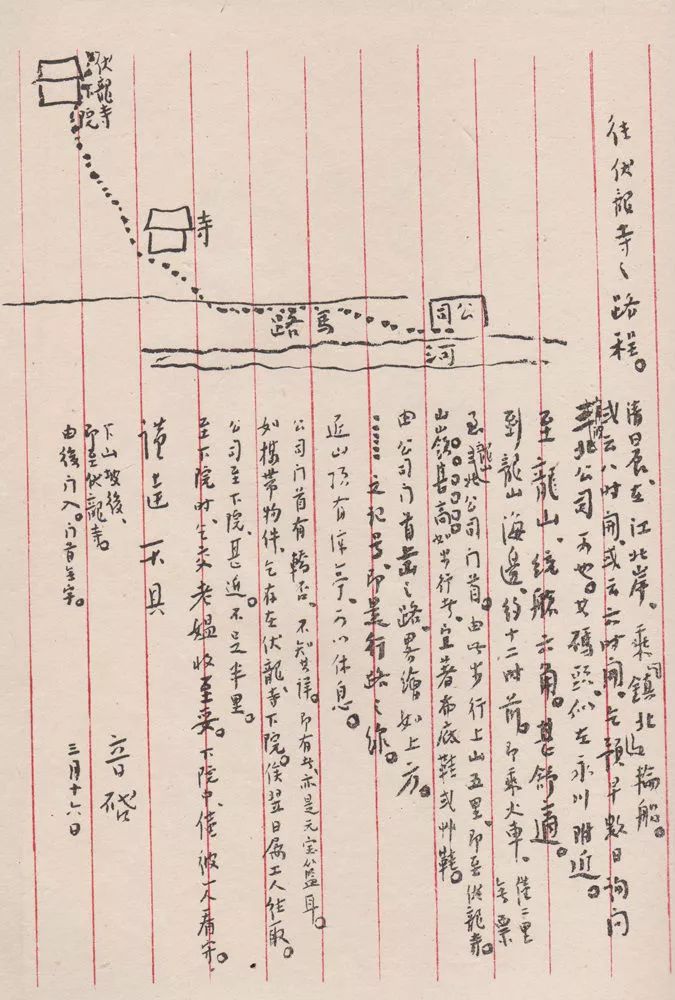 往伏龍寺之路程。
伏龍寺
下院
寺
公司
馬路
河
晨在江北岸、乘開鎮北輪船。
或云八时開、或云六时開。乞預早數日詢问
北公司可也。其碼頭、似在永川附近。
至龍山、統艙六角。甚舒適。
到龍山海邊、約十二时前。即乘火車、僅二里
無票
至龍山公司门首。由此步行上山五里、即至伏龍寺。
山嶺甚高。如步行者、宜著布底鞋或艸鞋。
由公司门首登山之路、畧繪如上方。
……之記号、即是行路之線。
近山頂有涼亭、可以休息。
公司门首有轎否、不知其詳。即有者、亦是元宝籃耳。
如携帶物件、乞存在伏龍寺下院。俟翌日属工人往取。
公司至下院、甚近。不足半里。
至下院时、乞交老媼收至妥。下院中、僅彼一人看守。
謹達不具
音啓
三月十六日
下山坡後、
即至伏龍寺。
由後门入。门首無字。